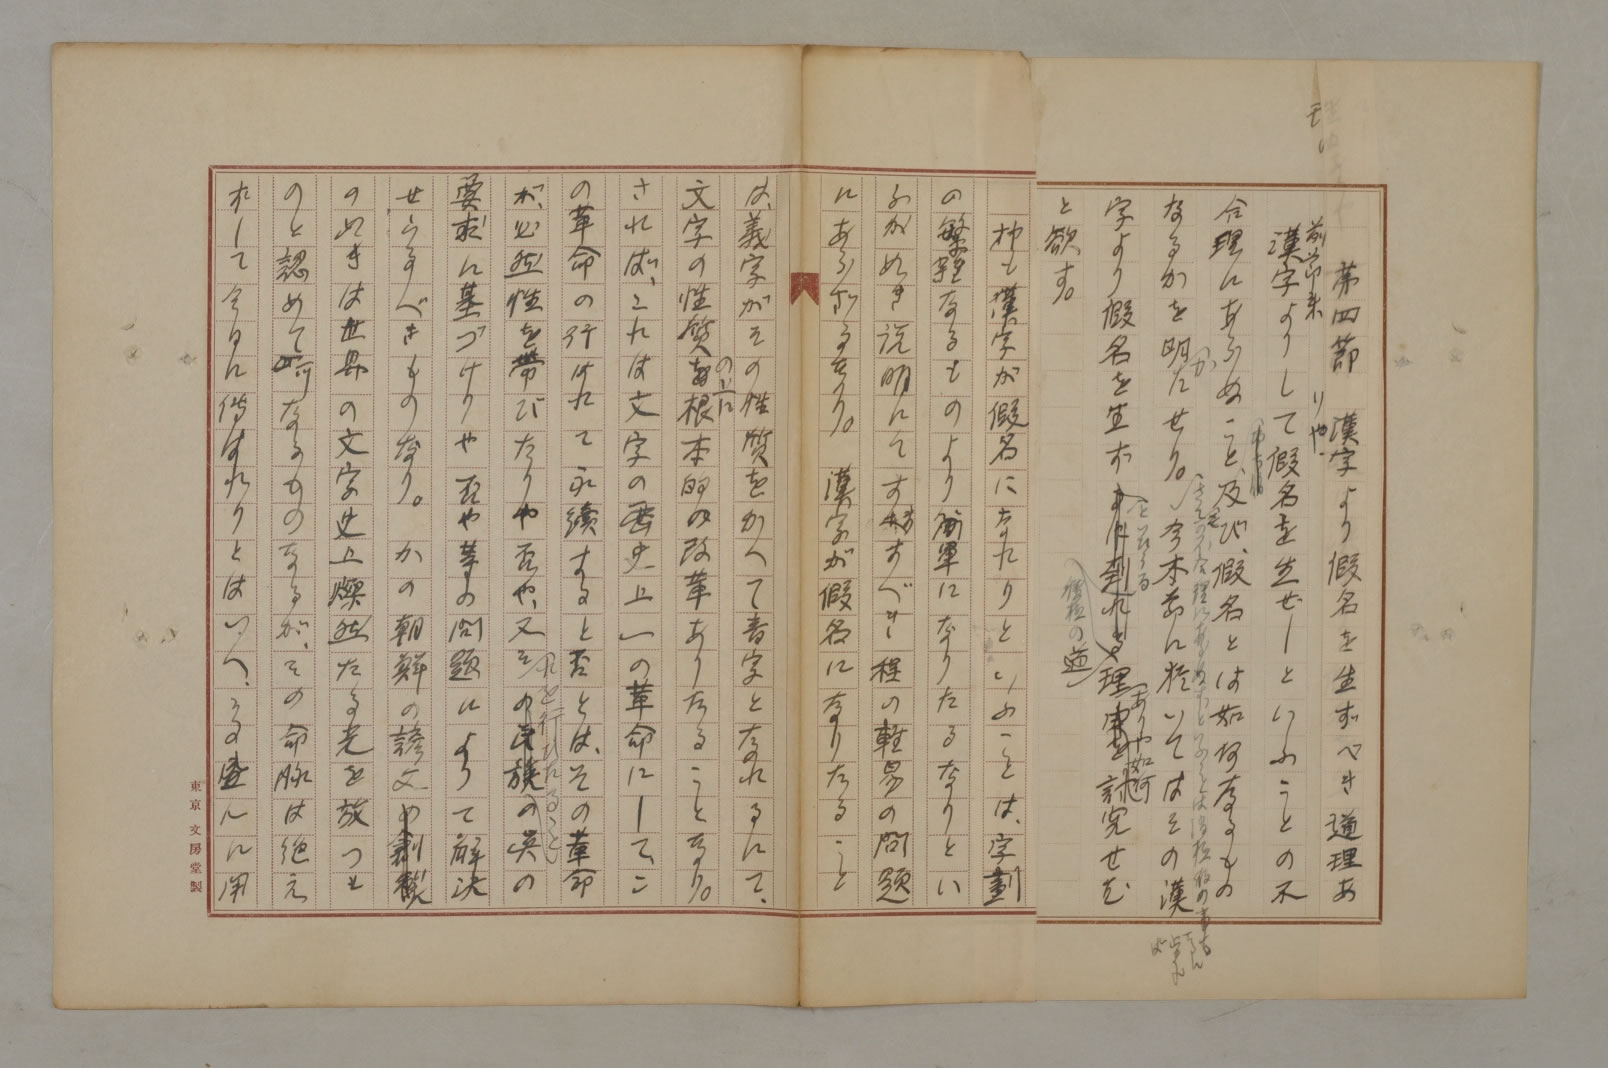 第四節　漢字より假名を生ずべき道理あ
りや
前節来
漢字よりして假名を生ぜしといふことの不
合理にあらぬこと、及び、假名とは如何なるもの
なるかを明かにせり。今本節に於いてはその漢
字より假名を生ず
理
を討究せむ
と欲す。
積極の道
ありや如何
抑も漢字が假名になれりといふことは、字劃
の繁雜なるものより簡單になりたるなりとい
ふが如き説明にてすますべき程の軽易の問題
にあらざるなり。漢字が假名になりたること
は、義字がその性質をかへて音字となれるにて、
文字の性質の上に根本的の改革ありたることなり。
されば、これは文字の歴史上一の革命にして、こ
の革命の行はれて永續すると否とは、その革命
が、必然性を帶びたりや否や、又その民族の共の
れを行ひたること
要求に基づけりや否や等の問題によりて解決
せらるべきものなり。かの朝鮮の諺文の創製
の如きは世界の文字史上燦然たる光を放つも
のと認めて可なるものなるが、その命脈は絶え
ずして今日に傳はれりとはいへ、その盛んに用
東京文房堂製